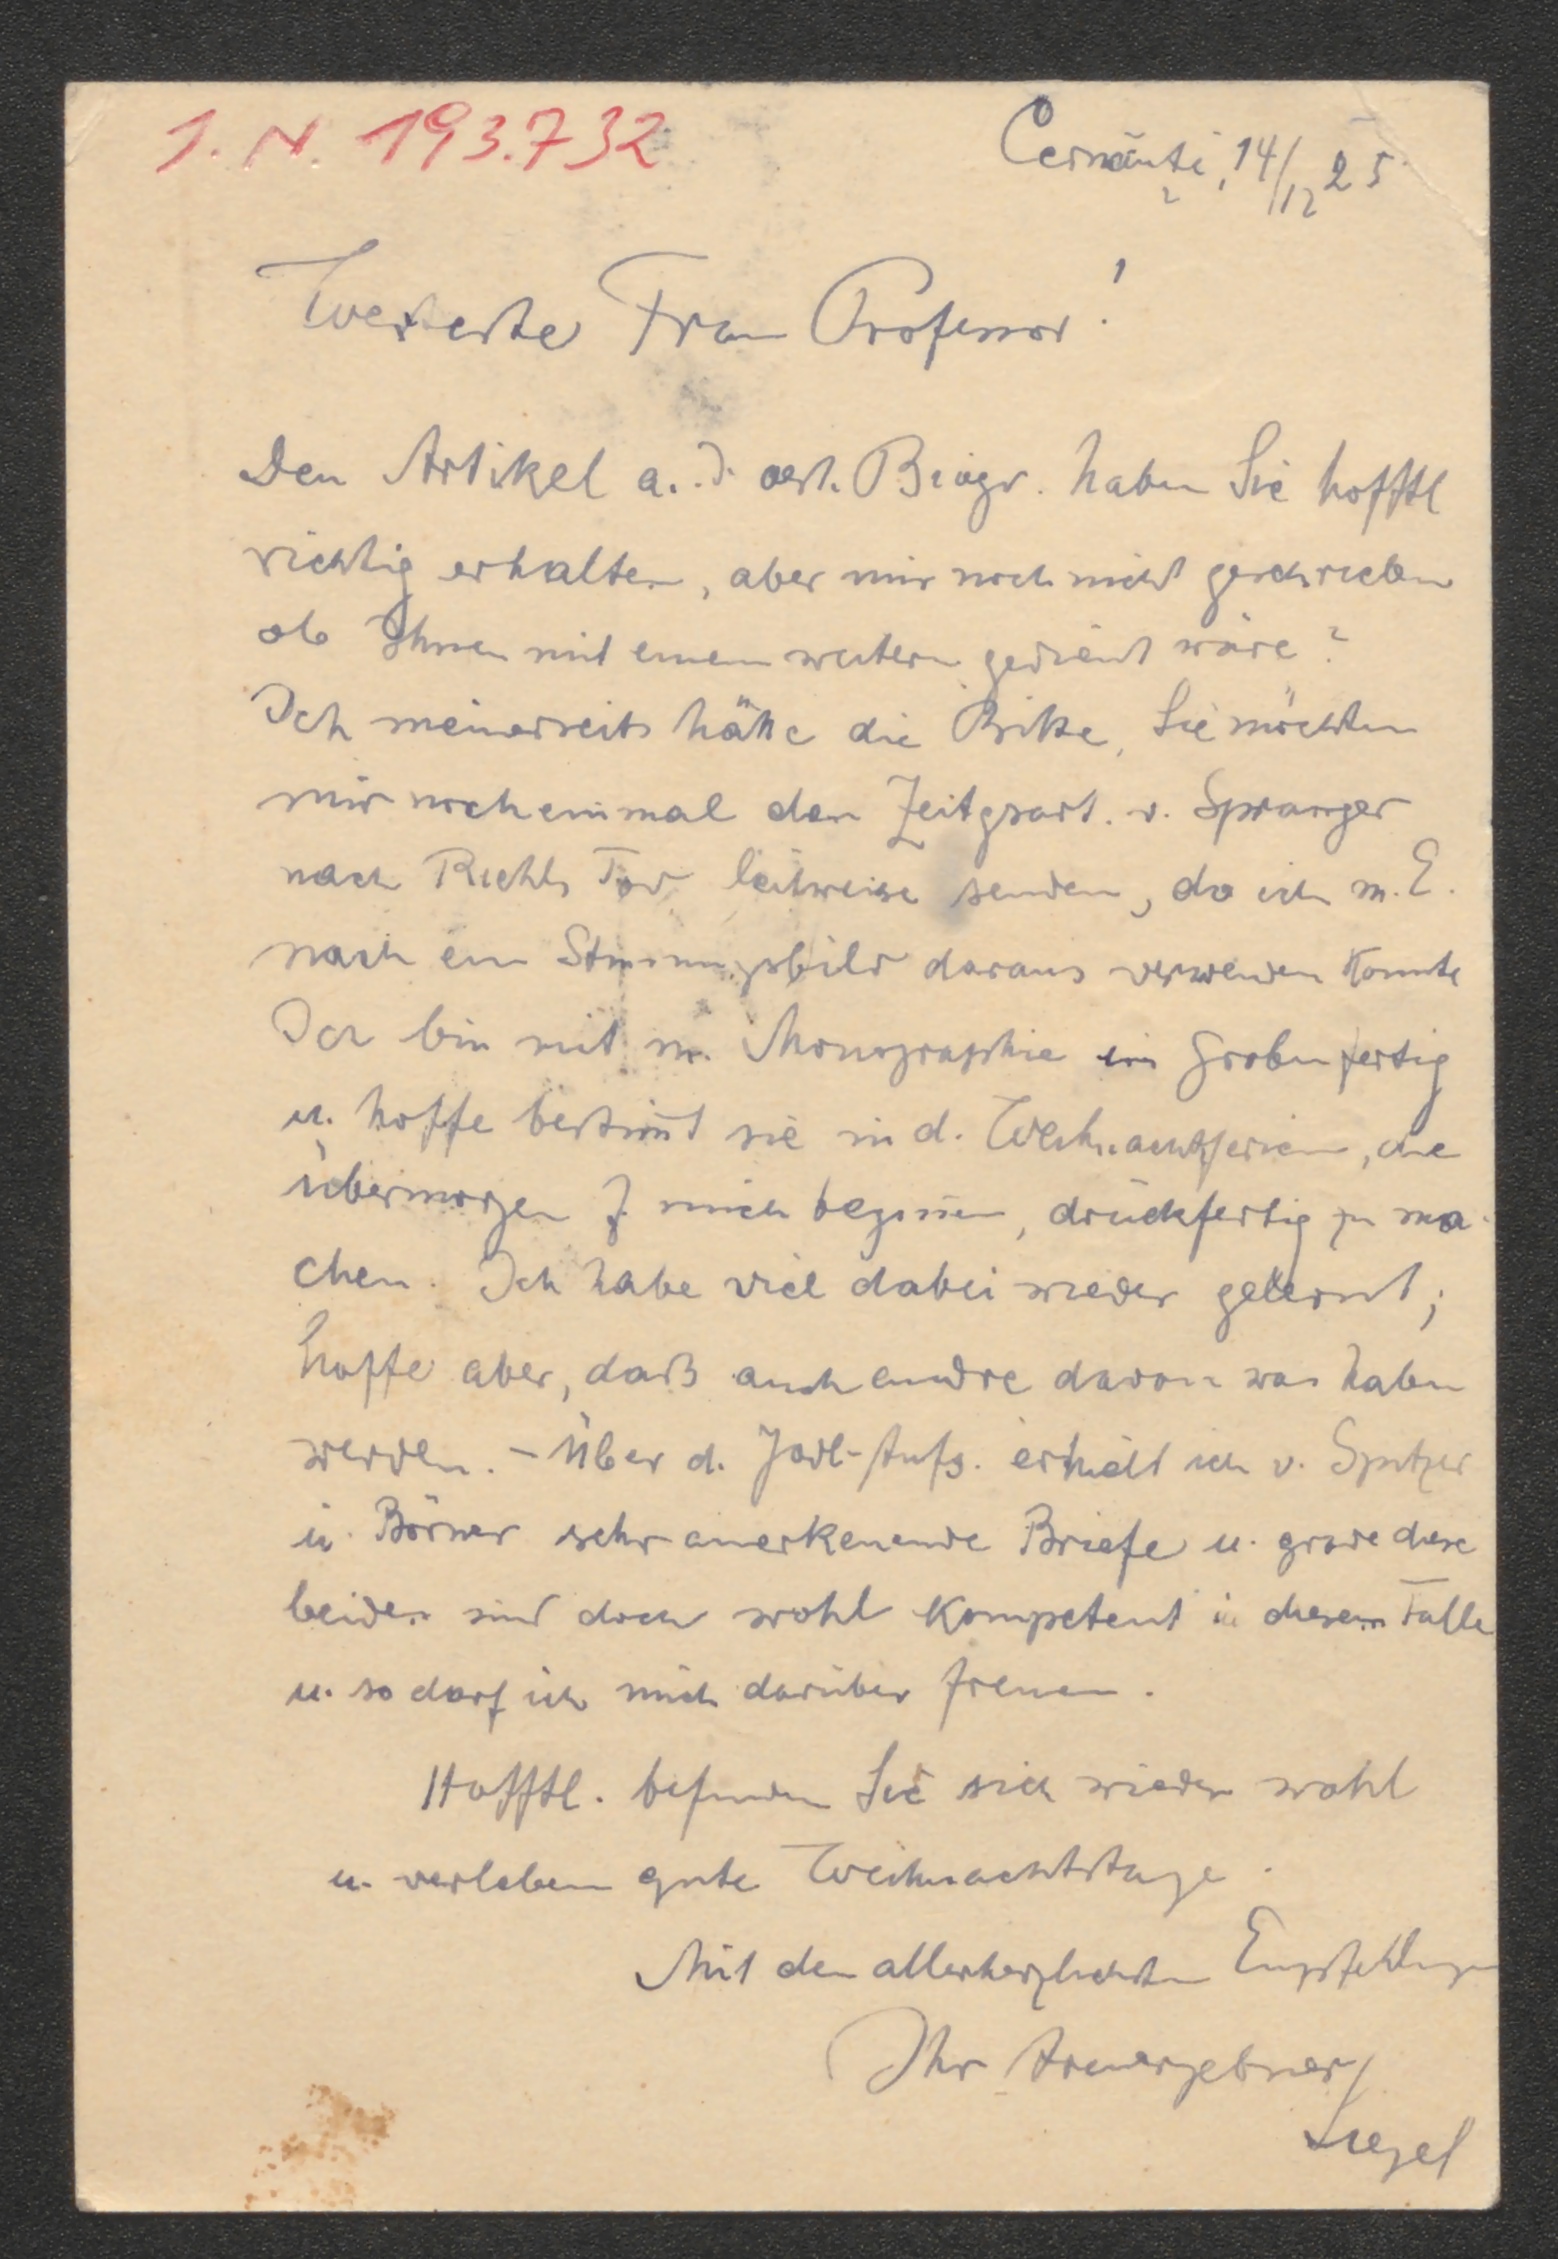 I. N. 193.732
Cernăuți, 14/12 25
Werteste Frau Professor!
Den Artikel a. d. oest. Biogr. haben Sie hofftl
richtig erhalten, aber mir noch nicht geschrieben
ob Ihnen mit einem weitern gedient wäre?
Ich meinerseits hätte die Bitte, Sie möchten
mir noch einmal den Zeitgsart. v. Spranger
nach Riehls Tod leihweise senden, da ich m. E.
noch ein Stimmungsbild daraus verwenden könnte
Ich bin mit m. Monographie im Groben fertig
u. hoffe bestim̅t sie in d. Weihnachtsferien, die
übermorgen f mich begin̅en, druckfertig zu ma-
chen. Ich habe viel dabei wieder gelernt;
hoffe aber, daß auch andre davon was haben
werden. – Über d. Jodl-Aufs. erhielt ich v. Spitzer
u. Börner sehr anerkenende Briefe u. grade diese
beiden sind doch wohl kompetent in diesem Falle
u. so darf ich mich darüber freuen.
Hofftl. befinden Sie sich wieder wohl
u. verleben gute Weihnachtstage.
Mit den allerherzlichsten Empfehlungen
Ihr treuergebner
Siegel